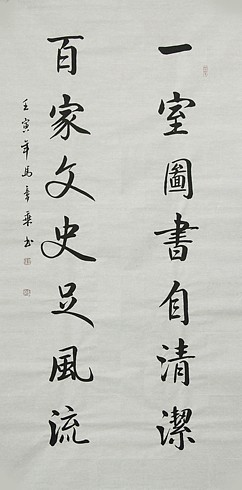 一室圖書自清潔
百家文史足風流
壬寅年馬章乘書